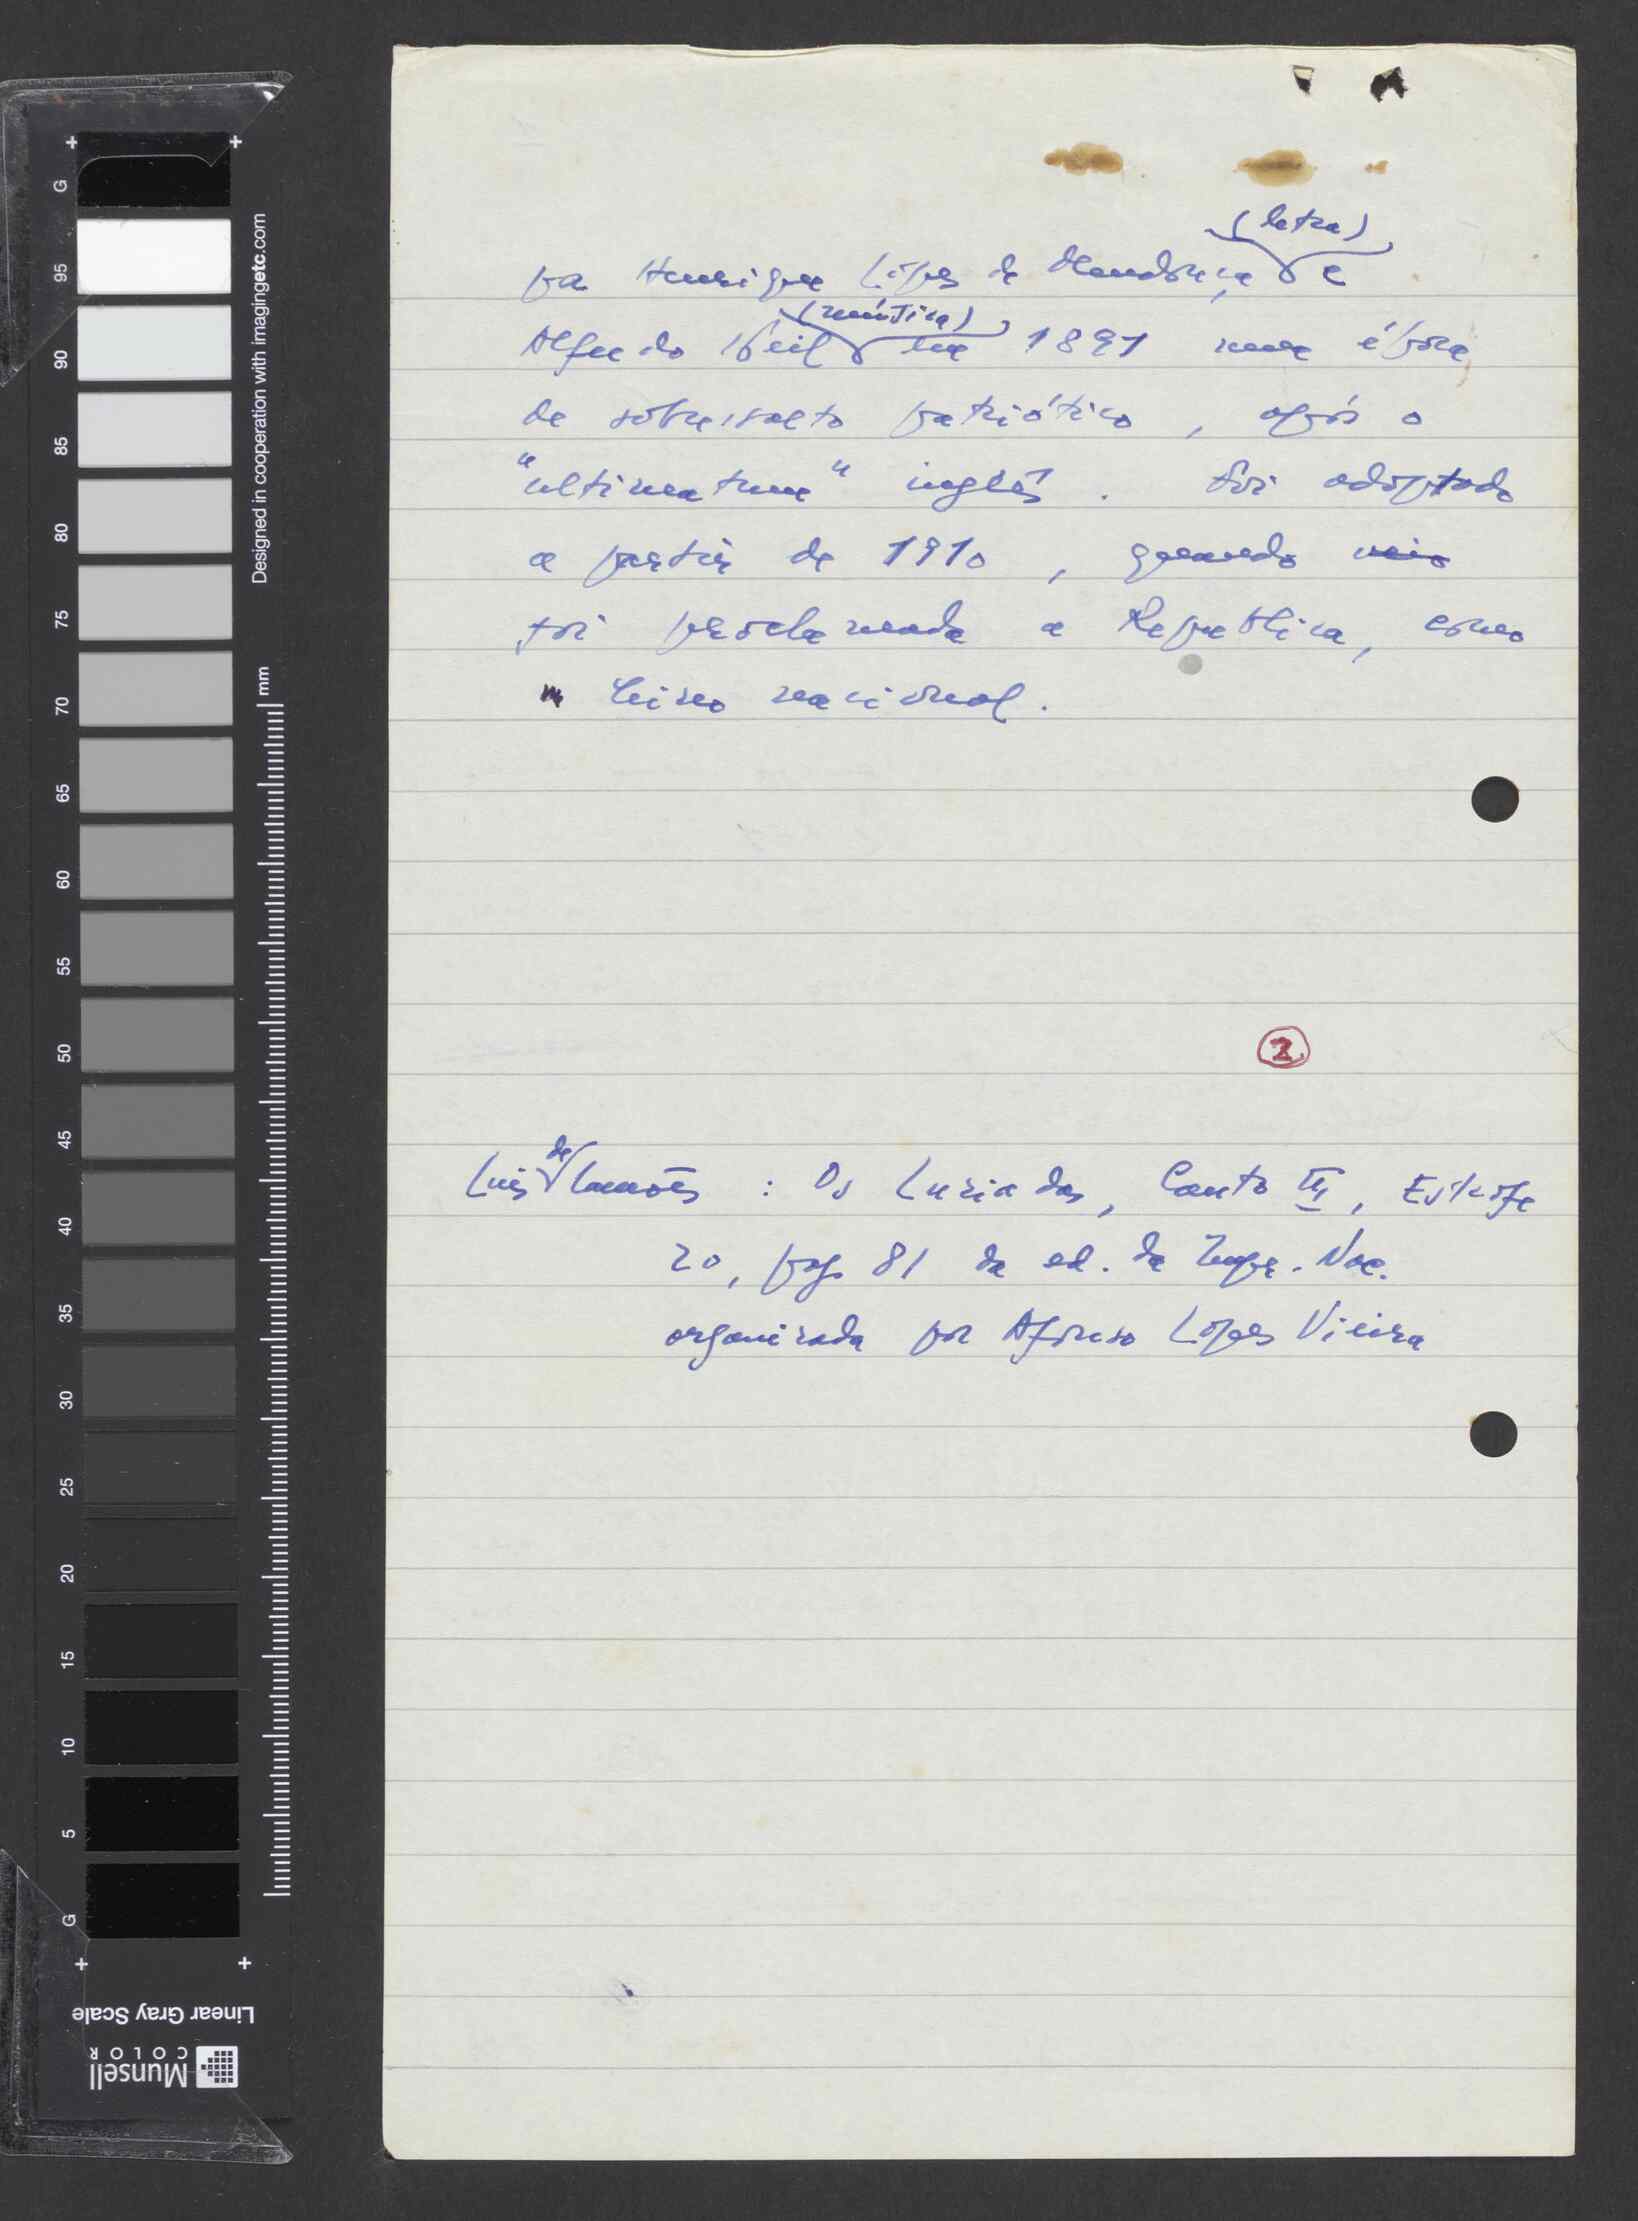 (letra)
por Henrique Lopes de Mendonça e
(música)
Alfredo Keil em 1891 numa época
de sobressalto patriótico, após o
"ultimatum" inglês. Foi adoptado
a partir de 1910, quando veio
foi proclamada a Republica, como
hino nacional.
2
Luís de Camões: Os Lusiadas, Canto III, Estrofe
20, pag. 81 da ed. da Impr. Nac.
organizada por Afonso Lopes Vieira
G
95
90
85
80
75
70
65
60
55
50
45
40
35
30
25
20
15
10
5
G
mm
Designed in cooperation with imagingetc.com
Linear Gray Scale
Munsell
COLOR